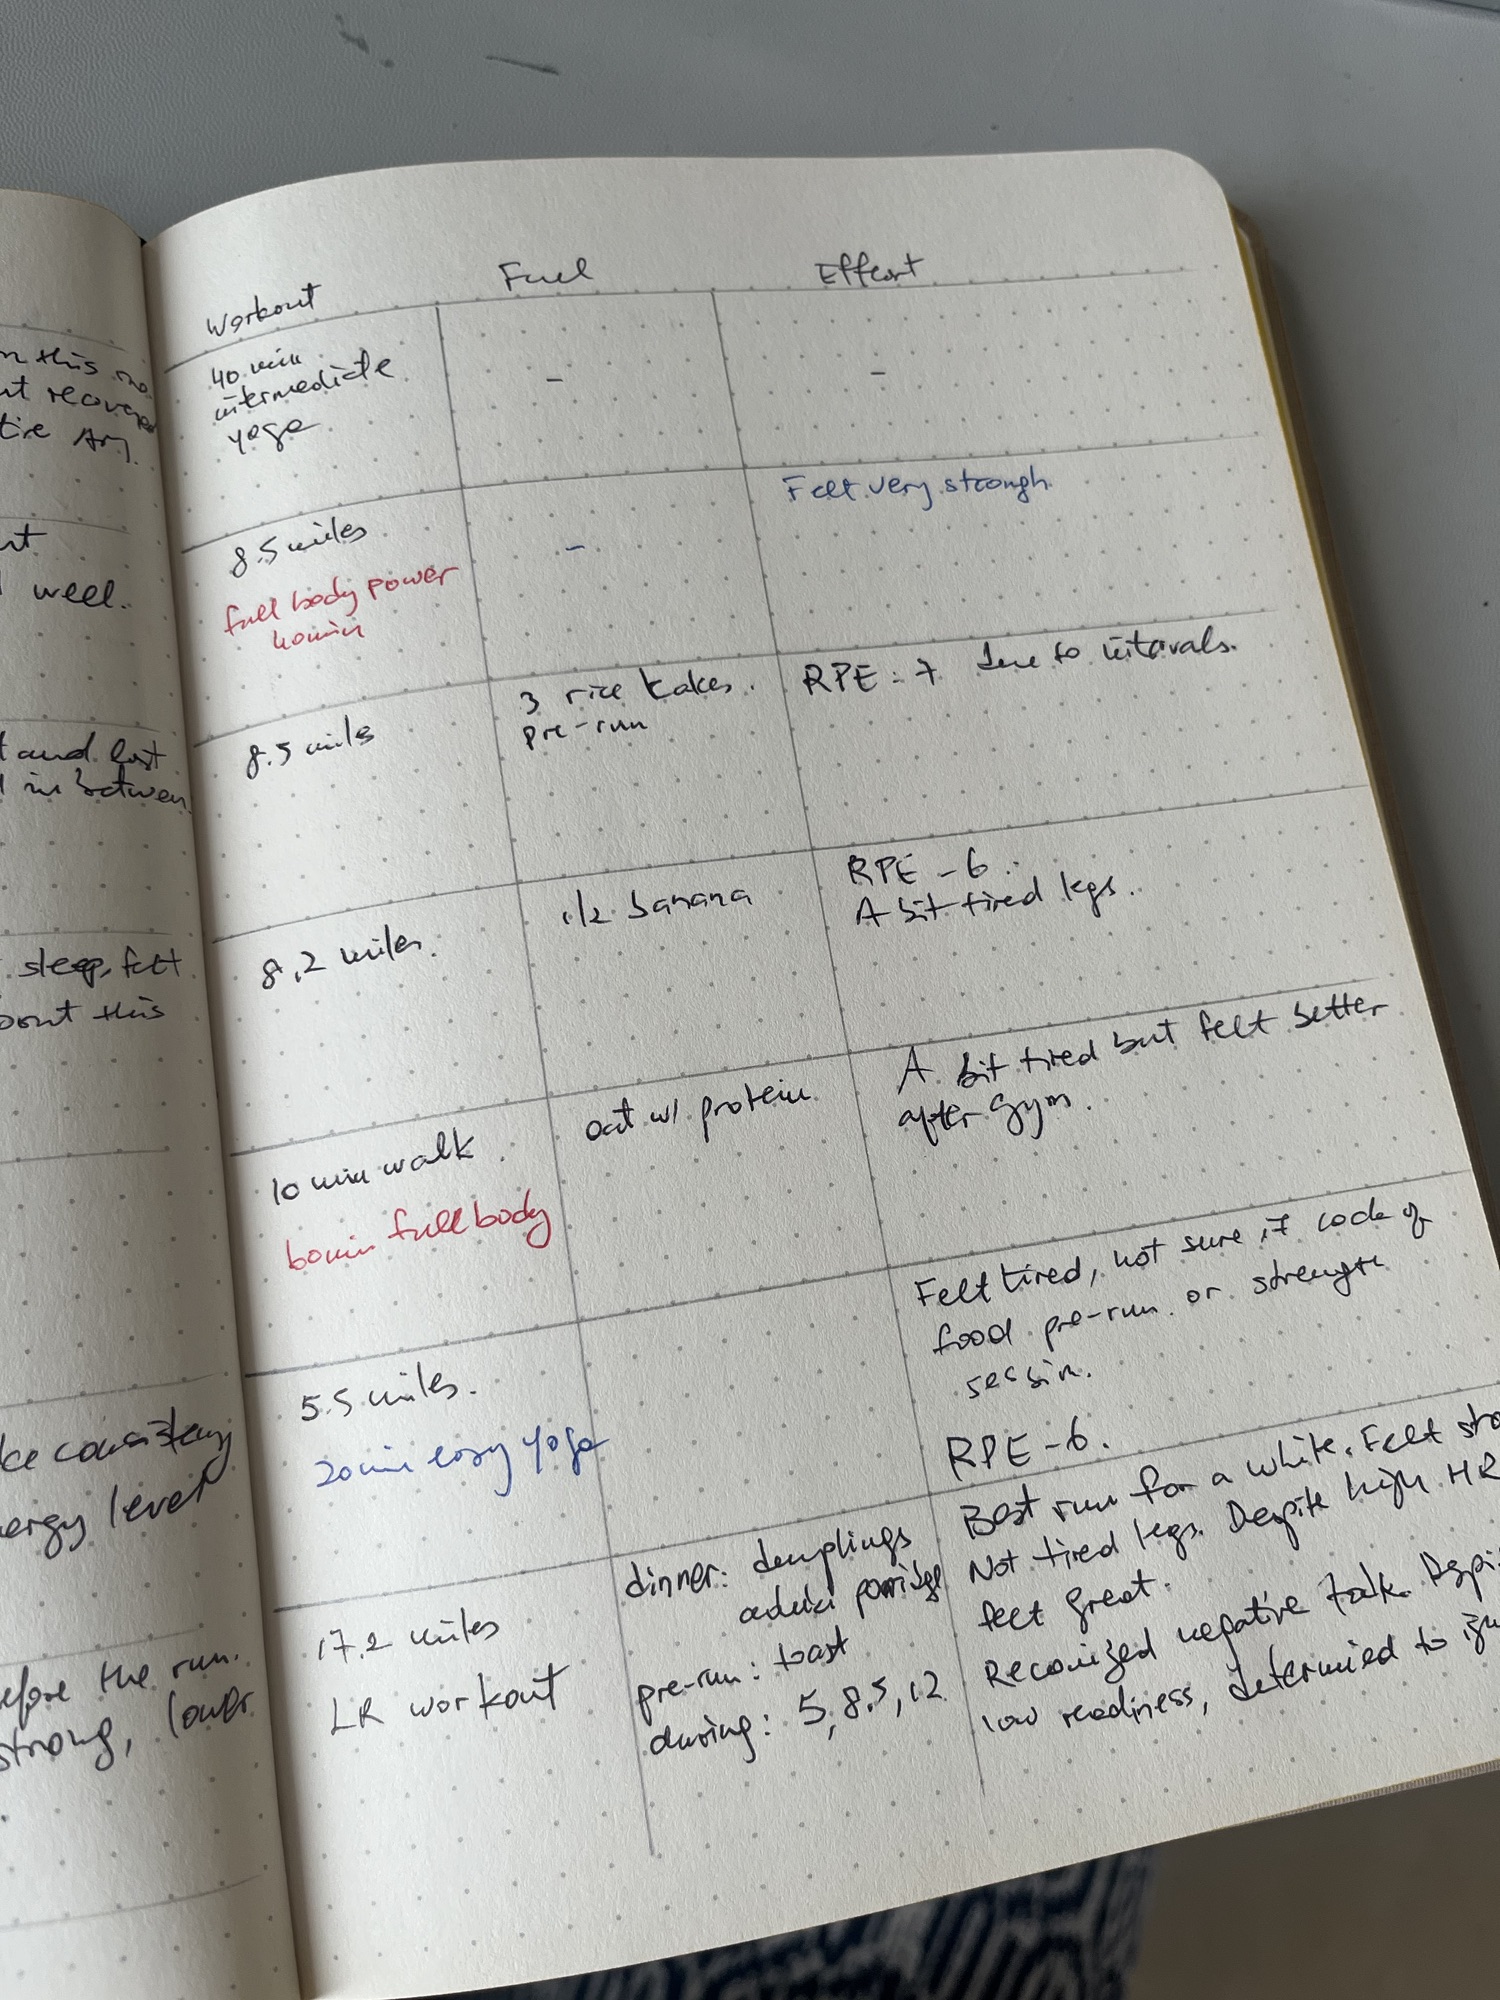 n this
recover
tire
well.
and last
in between
sleep, felt
this
consistency
energy level
before the run.
strong, lower
Workout
Fuel
Effort
40 min
intermediate
yoga
-
-
8.5 miles
full body power
40min
-
Felt very strongh
8.5 miles
3 rice kakes.
pre-run
RPE - 7 due to intervals.
8.2 miles.
1/2 banana
RPE - 6.
A bit tired legs.
10 min walk
60min full body
oat w/ protein
A bit tired but felt better
after gym.
5.5 miles.
20min easy yoga
Felt tired, not sure if lack of
food pre-run or strength
session.
RPE - 6.
17.2 miles
LR workout
dinner: dumplings
aduki porridge
pre-run: toast
during: 5, 8.5, 12
Best run for a while. Felt
Not tired legs. Despite high HR
felt great.
Reconized negative talk.
low readiness, determined to